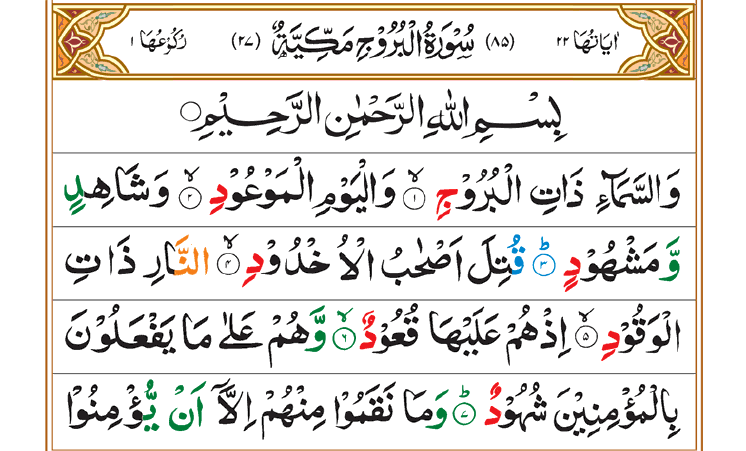 اٰيَاتُهَا ٢٢ (٨٥) سُوْرَةُ الْبُرُوْجِ مَكِّيَّةٌ (٢٧) رُكُوْعُهَا ١
بِسْمِ اللّٰهِ الرَّحْمٰنِ الرَّحِيْمِ
وَالسَّمَآءِ ذَاتِ الْبُرُوْجِ ۙ ١ وَالْيَوْمِ الْمَوْعُوْدِ ۙ ٢ وَشَاهِدٍ
وَّمَشْهُوْدٍ ؕ ٣ قُتِلَ اَصْحٰبُ الْاُخْدُوْدِ ۙ ٤ النَّارِ ذَاتِ
الْوَقُوْدِ ۙ ٥ اِذْ هُمْ عَلَيْهَا قُعُوْدٌ ۙ ٦ وَّهُمْ عَلٰى مَا يَفْعَلُوْنَ
بِالْمُؤْمِنِيْنَ شُهُوْدٌ ؕ ٧ وَمَا نَقَمُوْا مِنْهُمْ اِلَّاۤ اَنْ يُّؤْمِنُوْا